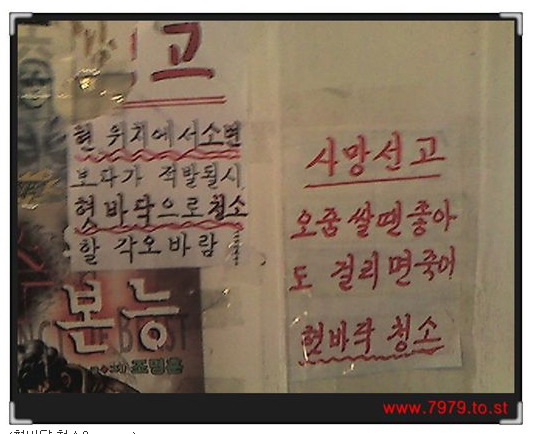 고
현 위치에서소변
보다가 적발될시
혓바닥으로청소
할 각오바람
본능
사망선고
오줌쌀땐좋아
도 걸리면죽어
혓바닥 청소
www.7979.to.st